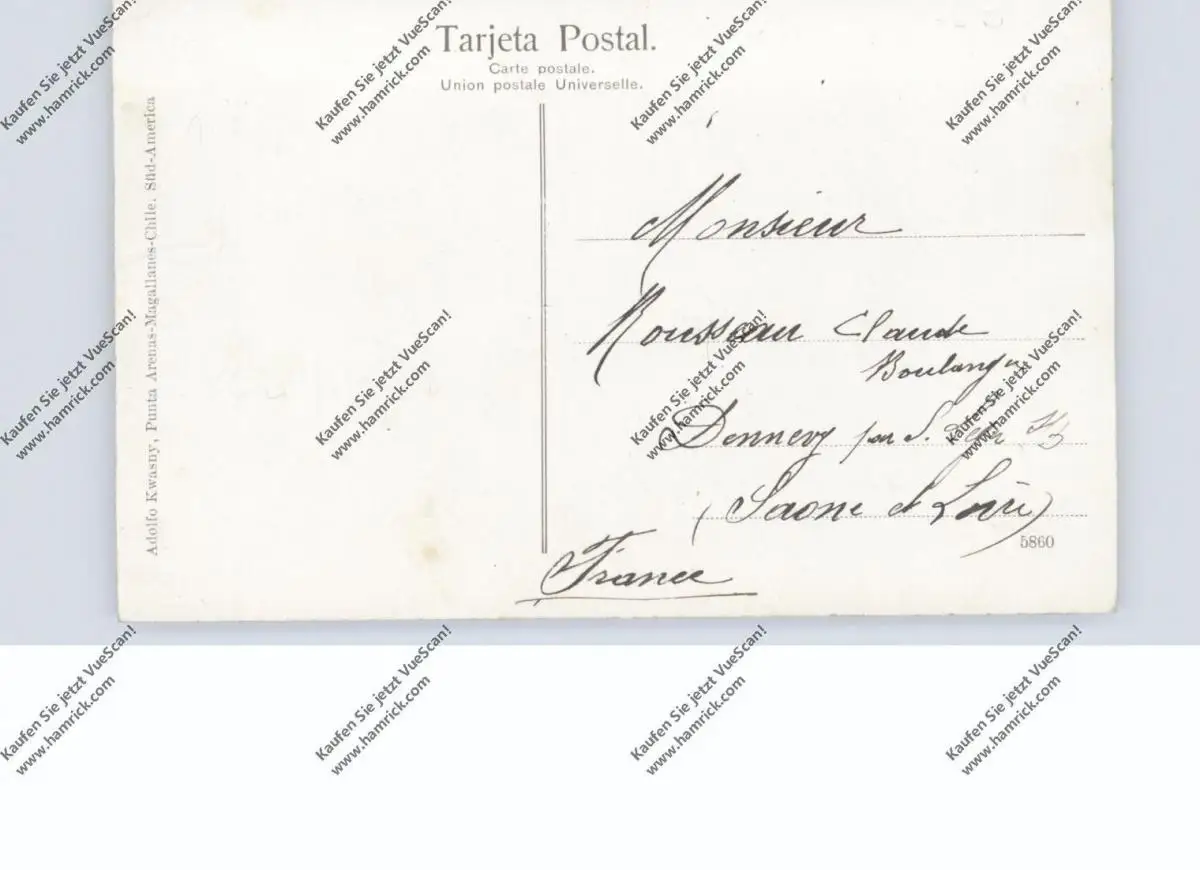 Tarjeta Postal.
Carte postale.
Union postale Universelle.
Adolfo Kwasny, Punta Arenas-Magallanes-Chile. Süd-America
Monsieur
Rousseau Claude
Boulanger
Dennevy par S.
(Saone et Loire)
5860
France
Kaufen Sie jetzt VueScan!
www.hamrick.com
Kaufen Sie jetzt VueScan!
www.hamrick.com
Kaufen Sie jetzt VueScan!
www.hamrick.com
Kaufen Sie jetzt VueScan!
www.hamrick.com
Kaufen Sie jetzt VueScan!
www.hamrick.com
Kaufen Sie jetzt VueScan!
www.hamrick.com
Kaufen Sie jetzt VueScan!
www.hamrick.com
Kaufen Sie jetzt VueScan!
www.hamrick.com
Kaufen Sie jetzt VueScan!
www.hamrick.com
Kaufen Sie jetzt VueScan!
www.hamrick.com
Kaufen Sie jetzt VueScan!
www.hamrick.com
Kaufen Sie jetzt VueScan!
www.hamrick.com